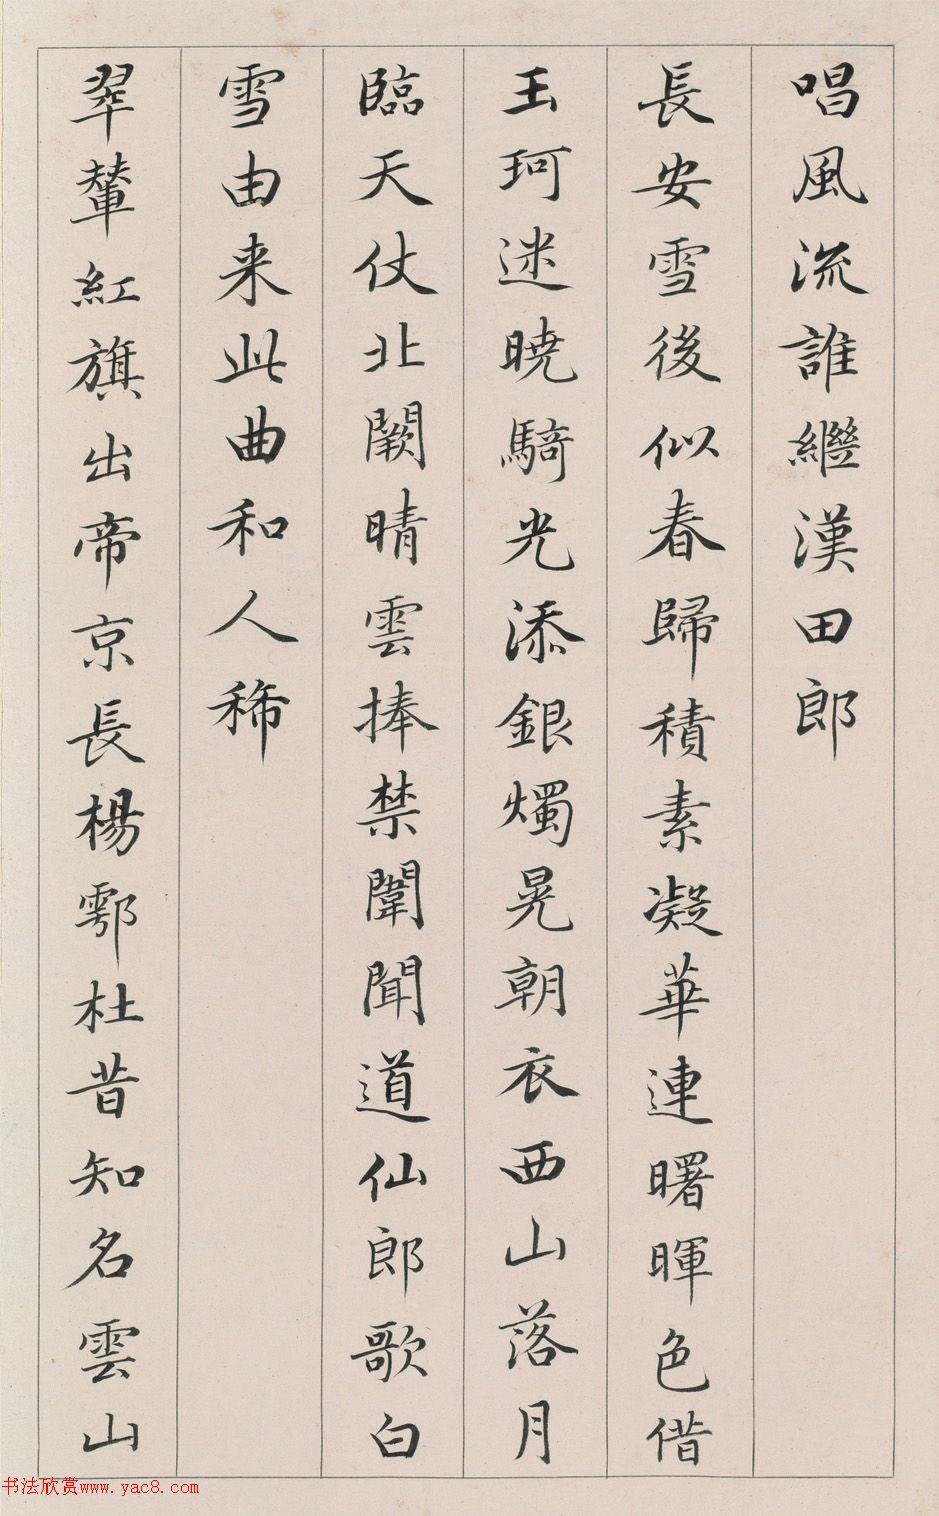 唱風流誰繼漢田郎
長安雪後似春歸積素凝華連曙暉色借
玉珂迷曉騎光添銀燭晃朝衣西山落月
臨天仗北闕晴雲捧禁闈聞道仙郎歌白
雪由来此曲和人稀
翠輦紅旗出帝京長楊鄠杜昔知名雲山
书法欣赏www.yac8.com